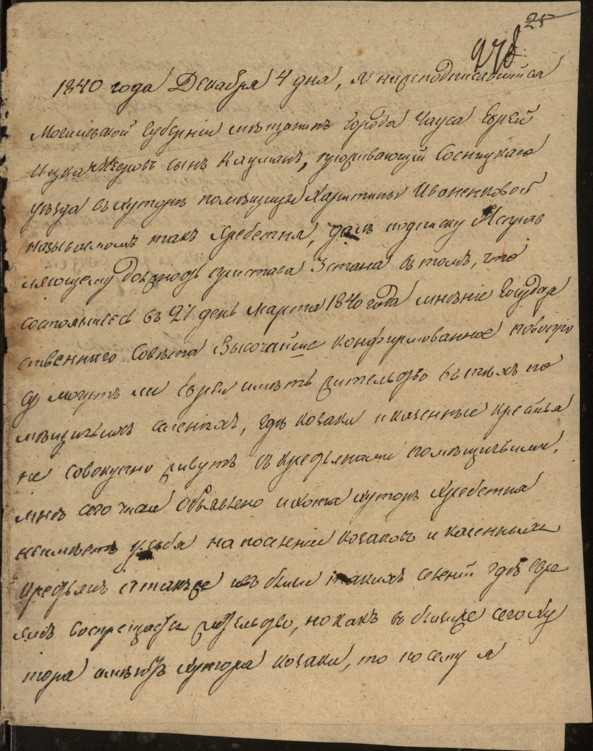 25
278
1840 года Декабря 4 дня, я нижеподписавшийся
Могилевской Губерніи мещанинъ города Чауса Еврей
Ицка сынъ Кауманъ, проживающій Сосницкаго
уезда въ хуторе помещицы Иваненковой
называемомъ такъ Хребетня, далъ подписку Исправ
ляющему должность пристава 3 стана въ томъ, что
состоявшееся въ 27 день Марта 1840 года мнѣніе Государ
ственнаго Совѣта Высочайше конфирмованное
могутъ ли евреи иметь жительство въ техъ по
мещичьихъ селеніяхъ, где козаки и казенные крестьяне
не совокупно живутъ съ крестьянами помещичьими,
мне сего числа объявлено и хотя хуторъ Хребетня
не имеетъ у себя на поселеніи козаковъ и казенныхъ
крестьянъ а также такихъ селеній где евре
ямъ воспрещается жительство, но какъ въ сего ху
тора имеютъ хутора козаки, то по сему я